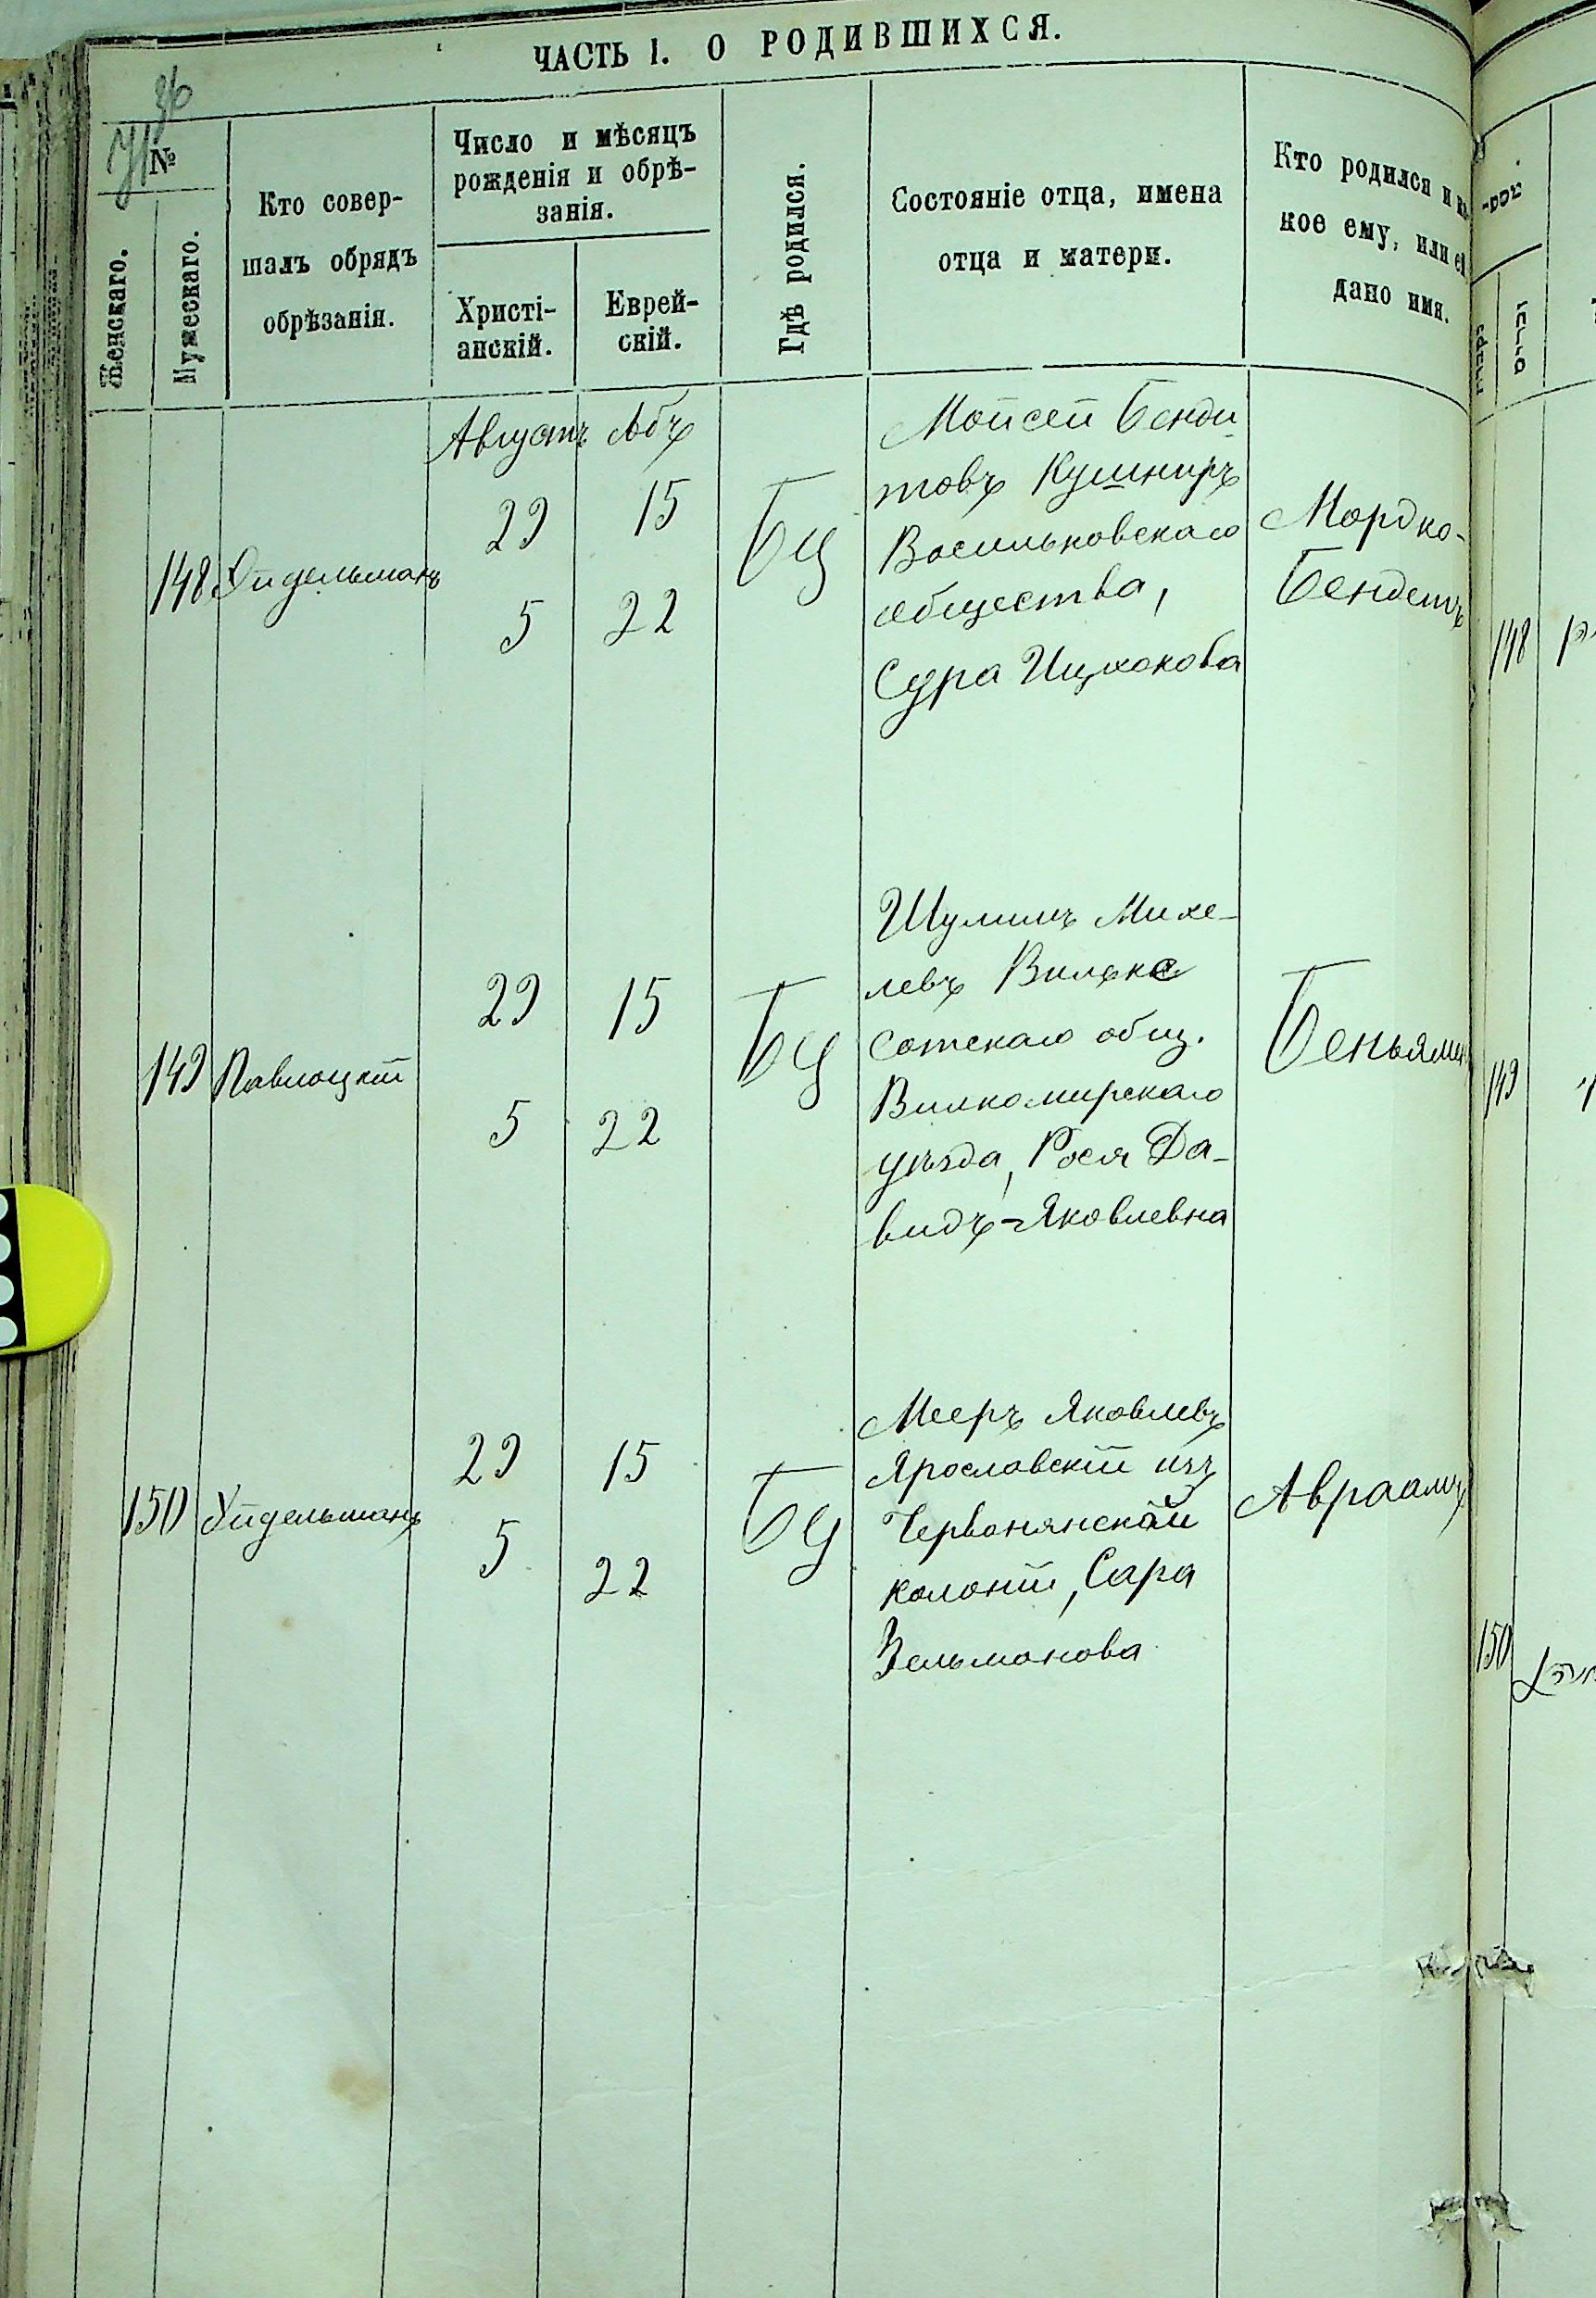 ЧАСТЬ I. О РОДИВШИХСЯ.
№
Женскаго.
Мужескаго.
Кто совер-
шалъ обрядъ
обрѣзанія.
Число и мѣсяцъ
рожденія и обрѣ-
занія.
Христі-
анскій.
Еврей-
скій.
Гдѣ родился.
Состояніе отца, имена
отца и матери.
Кто родился и ка
кое ему, или ей
дано имя.
Августъ Абъ
148 Эйдельманъ
29 15
5 22
БЦ
Мойсей Бенди
товъ Кушниръ
Васильковскаго
общества,
Сура Ицхокова
Мордко-
Бендетъ
148
149 Павлоцкій
29 15
5 22
БЦ
Шулимъ Михе-
левъ
сотскаго общ.
Вилкомирскаго
уѣзда, Рося Да-
видъ-Яковлевна
Беньямин
149
150 Эйдельманъ
29 15
5 22
БЦ
Мееръ Яковлевъ
Ярославскій изъ
Червонянской
колоніи, Сара
Зельманова
Авраамъ
150